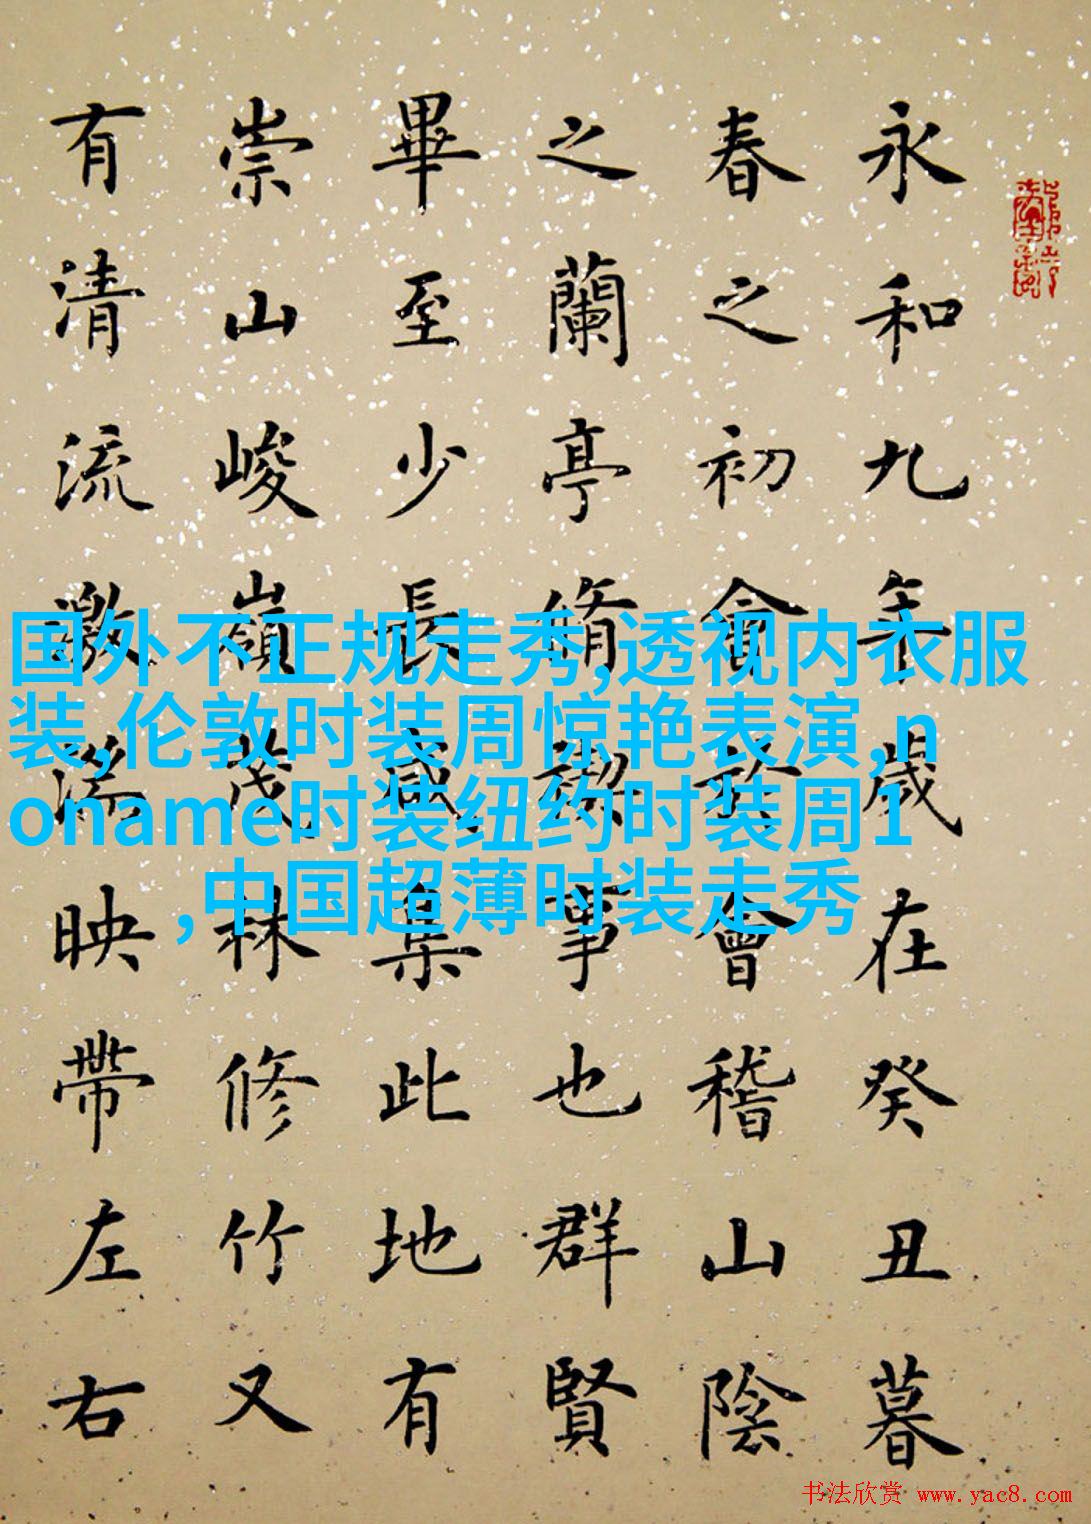 永和九年歲在癸丑暮
春之初會於會稽山陰
之蘭亭脩禊事也群賢
畢至少長咸集此地有
崇山峻嶺茂林修竹又
有清流激湍映帶左右
国外不正规走秀,透视内衣服
装,伦敦时装周惊艳表演,n
oname时装纽约时装周1
,中国超薄时装走秀
书法欣赏 www.yac8.com